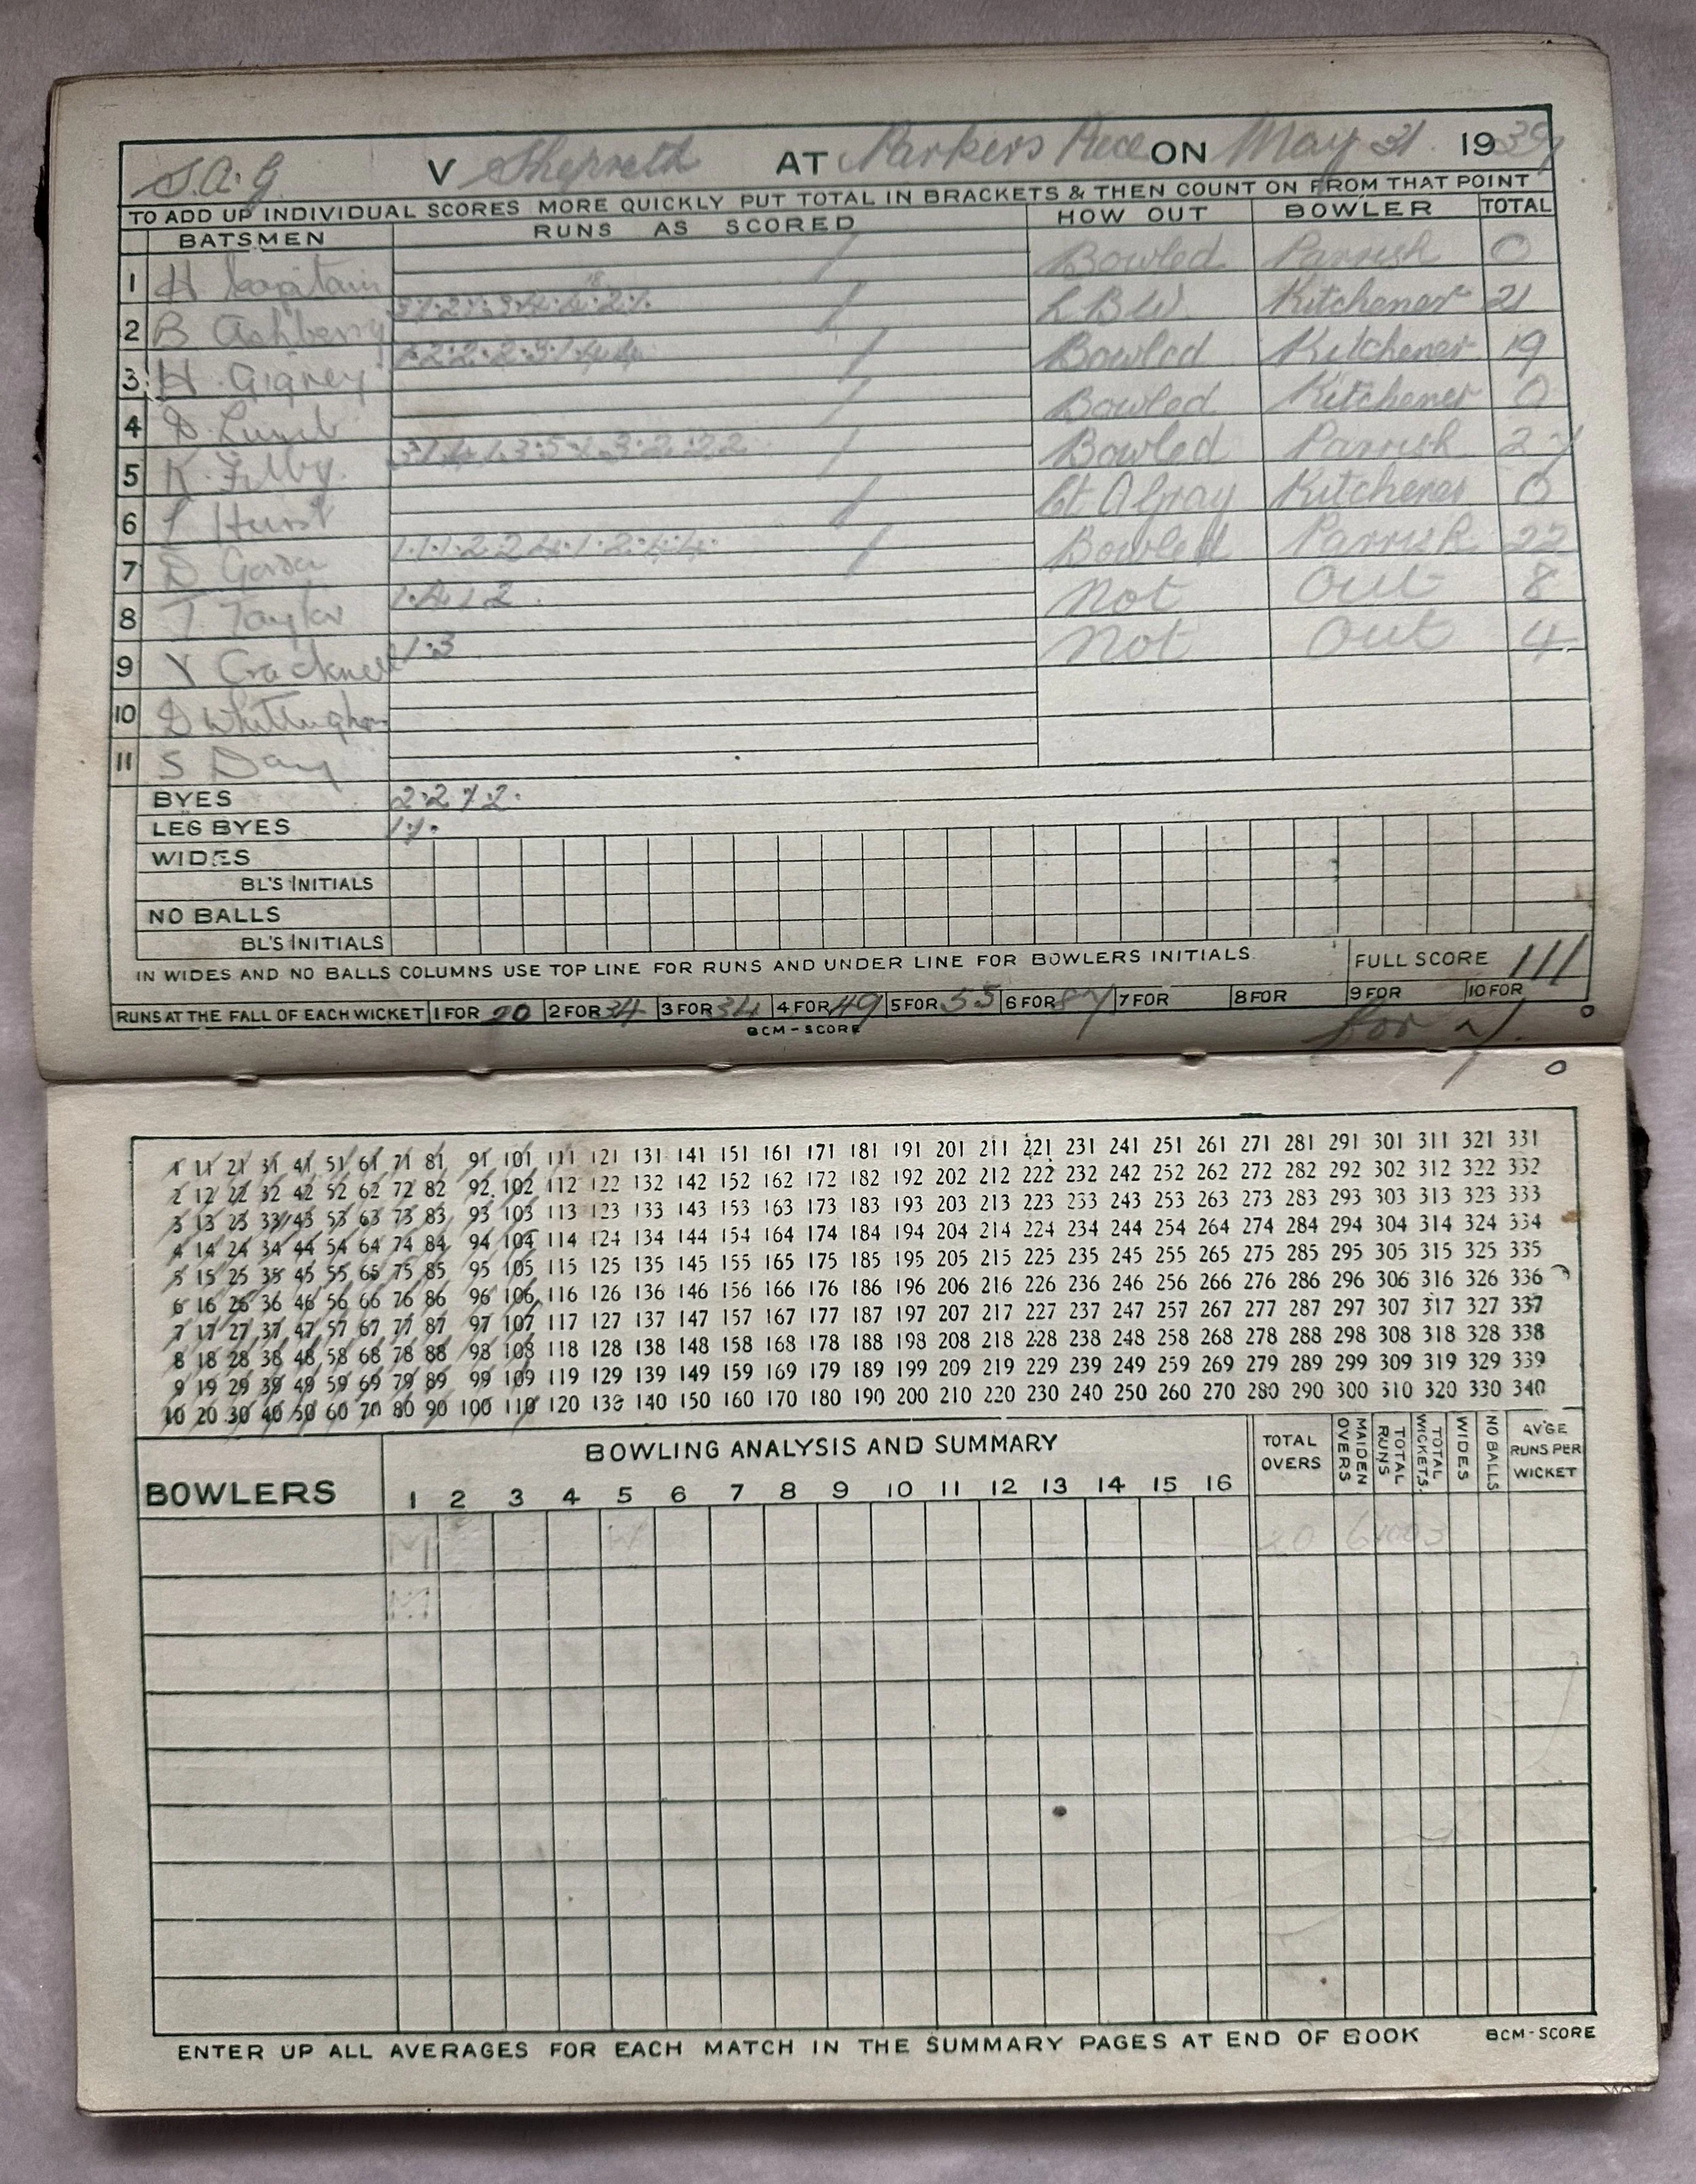 S.A.G. V Shepreth AT Parkers Piece ON May 31. 1939
TO ADD UP INDIVIDUAL SCORES MORE QUICKLY PUT TOTAL IN BRACKETS & THEN COUNT ON FROM THAT POINT
BATSMEN RUNS AS SCORED HOW OUT BOWLER TOTAL
1 H Bowled Parrish 0
2 B Ashberry L.B.W. Kitchener 21
3 H. Gigney Bowled Kitchener 19
4 D. Bowled Kitchener 0
5 K. Filby. Bowled Parrish 27
6 Hurst Ct. A Gray Kitchener 0
7 D 1.1.1.2.2.4.1.2.4.4. Bowled Parrish 22
8 T. Taylor 1.4.1.2. Not Out 8
9 Cracknell 1.3 Not Out 4
10 D Whittingham
11 S Day
BYES 2.2 2.
LEG BYES
WIDES
BL'S INITIALS
NO BALLS
BL'S INITIALS
IN WIDES AND NO BALLS COLUMNS USE TOP LINE FOR RUNS AND UNDER LINE FOR BOWLERS INITIALS. FULL SCORE 111
RUNS AT THE FALL OF EACH WICKET 1 FOR 20 2 FOR 34 3 FOR 34 4 FOR 49 5 FOR 55 6 FOR 87 7 FOR 8 FOR 9 FOR 10 FOR
BCM-SCORE for 7.
1 11 21 31 41 51 61 71 81 91 101 111 121 131 141 151 161 171 181 191 201 211 221 231 241 251 261 271 281 291 301 311 321 331
2 12 22 32 42 52 62 72 82 92 102 112 122 132 142 152 162 172 182 192 202 212 222 232 242 252 262 272 282 292 302 312 322 332
3 13 23 33 43 53 63 73 83 93 103 113 123 133 143 153 163 173 183 193 203 213 223 233 243 253 263 273 283 293 303 313 323 333
4 14 24 34 44 54 64 74 84 94 104 114 124 134 144 154 164 174 184 194 204 214 224 234 244 254 264 274 284 294 304 314 324 334
5 15 25 35 45 55 65 75 85 95 105 115 125 135 145 155 165 175 185 195 205 215 225 235 245 255 265 275 285 295 305 315 325 335
6 16 26 36 46 56 66 76 86 96 106 116 126 136 146 156 166 176 186 196 206 216 226 236 246 256 266 276 286 296 306 316 326 336
7 17 27 37 47 57 67 77 87 97 107 117 127 137 147 157 167 177 187 197 207 217 227 237 247 257 267 277 287 297 307 317 327 337
8 18 28 38 48 58 68 78 88 98 108 118 128 138 148 158 168 178 188 198 208 218 228 238 248 258 268 278 288 298 308 318 328 338
9 19 29 39 49 59 69 79 89 99 109 119 129 139 149 159 169 179 189 199 209 219 229 239 249 259 269 279 289 299 309 319 329 339
10 20 30 40 50 60 70 80 90 100 110 120 130 140 150 160 170 180 190 200 210 220 230 240 250 260 270 280 290 300 310 320 330 340
BOWLERS BOWLING ANALYSIS AND SUMMARY TOTAL OVERS MAIDEN OVERS TOTAL RUNS TOTAL WICKETS. WIDES NO BALLS AVGE RUNS PER WICKET
1 2 3 4 5 6 7 8 9 10 11 12 13 14 15 16
M W
M
ENTER UP ALL AVERAGES FOR EACH MATCH IN THE SUMMARY PAGES AT END OF BOOK BCM-SCORE